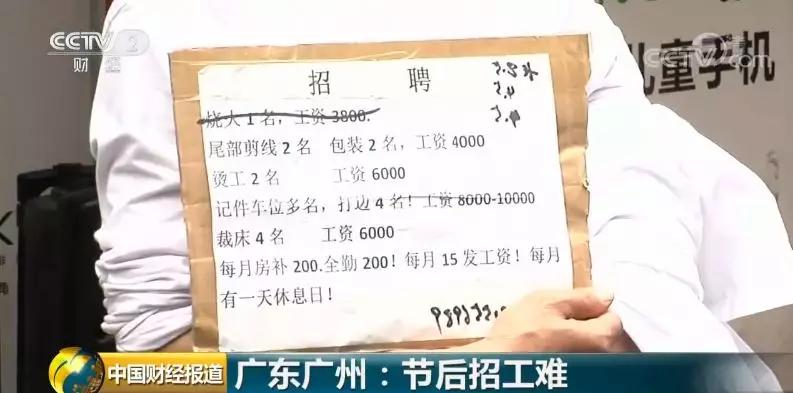 CCTV 2
财经
CCTV
儿童手机
招 聘
烧火1名，工资3800.
尾部剪线2名 包装2名，工资4000
烫工2名 工资6000
记件车位多名，打边4名！工资8000-10000
裁床4名 工资6000
每月房补200.全勤200！每月15发工资！每月
有一天休息日！
中国财经报道
广东广州：节后招工难